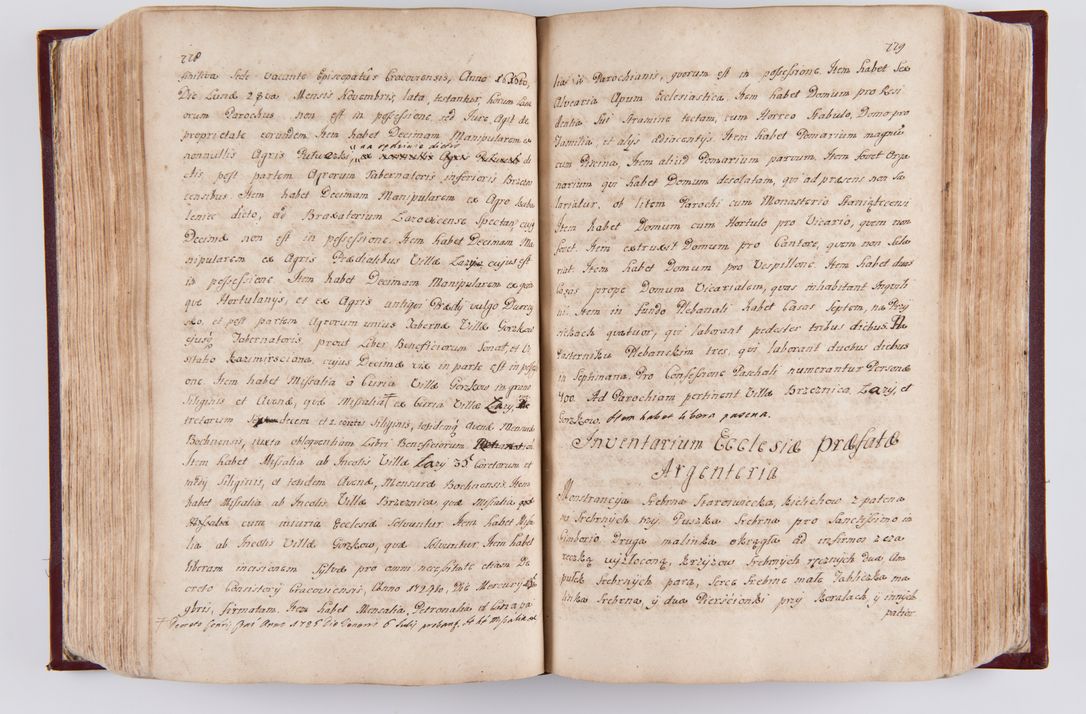 778
finitiva Sede vacante Episcopatus Cracoviensis, Anno
Die Lunæ 28va Mensis Novembris, lata, testantur, horum
orum Parochus non est in possessione, sed Jure Agit de
proprietate eorundem. Item habet Decimam Manipularem ex
nonnullis Agris
ctis, post partem Agrorum Tabernatoris inferioris
censibus Item habet Decimam Manipularem ex Agro
leniec dicto, ad Braxatorium spectan: cujus
Decimæ non est in possessione. Item habet Decimam Ma
nipularem ex Agris Prædialibus Villæ Łazy cujus est
in possessione. Item habet Decimam Manipularem
que Hortulanys, et ex Agris antiqui Prædij vulgo
et post partem Agrorum unius Tabernæ Villæ Gorzkow
ejusq Tabernatoris prout Liber Beneficiorum Sonat, et Vi
sitatio Kazimirsciana, cujus Decimæ in parte est in
one. Item habet Missalia à Curia Villæ Gorzkow in grano
Siliginis et Avenæ, quæ Missalia ex Curia Villæ Łazy,
cretorum decem et 2 Siliginis, totidemq Avenæ Mensuræ
Bochnensis, juxta eloquentiam Libri Beneficiorum
Item habet Missalia ab Incolis Villæ Łazy 35 Coretorum et
Siliginis, et totidem Avenæ, Mensuræ Bochnensis. Item
habet Missalia ab Incolis Villæ Brzeznica, quæ Missalia
cum injuria Ecclesiæ solvuntur. Item habet Missa
lia ab Incolis Villæ Gorzkow, quæ solvuntur. Item habet
liberam incisionem Sylvæ pro omni necessitate etiam De
creto Consistorij Cracoviensis, Anno Die Mercurij
gbris, firmatam. Item habet Mensalia, Petronalia et
Anno 1785 Die Veneris 6 Julij
779
Parochianis, quorum est in possessione. Item habet Sex
Alvearia Apum Ecclesiastica. Item habet Domum pro Resi
dentia Sui Stramine tectam, cum Horreo Stabulo, Domo pro
Familia, et alijs adjacentijs. Item habet Pomarium magnũ
cum Piscina, Item aliud Pomarium parvum. Item fovet Orga
narium qui habet Domum desolatam, qui ad præsens non Sa
lariatur, ob litem Parochi cum Monasterio Staniątecensi
Item habet Domum cum Hortulo pro Vicario, quem non
fovet. Item extruxit Domum pro Cantore, quem non Sala
riat. Item habet Domum pro Vespillone. Item habet duas
Casas prope Domum Vicarialem, quas inhabitant Inquili
ni. Item in fundo Plebanali habet Casas Septem, na Przy
quatuor, qui laborant pedester tribus diebus. Na
Pasterniku Plebanskim tres, qui laborant duobus diebus
in Septimana. Pro Confessione Paschali numerantur Personæ
700. Ad Parochiam pertinent Villæ Brzeznica, Łazy, et
Gorzkow. Item habet
Inventarium Ecclesiæ Præfatæ
Argenteria
Monstrancya Srebrna Staroswiecka, Kielichow z patena
mi Srebrnych trzy. Puszka Srebrna pro Sanctissimo in
Cimborio. Druga malinka okrągła ad infirmos z cza
reczką wyzłocong, Krzyżow Srebrnych ręcznych dwa, Am
pułek Srebrnych para, Serce Srebrne małe Tabliczka ma
linka Srebrna, y dwa Pierścionki przy Koralach, y innych